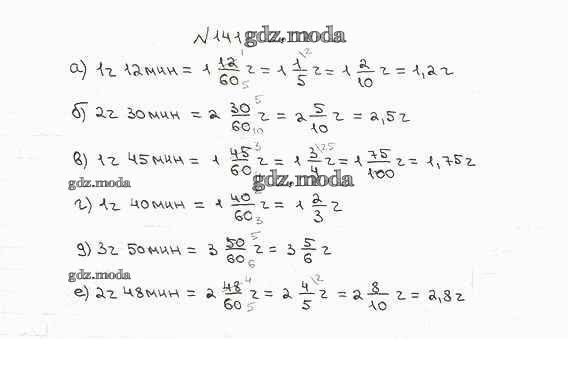 № 141 gdz.moda
а) 1ч 12 мин = 1 12/60 ч = 1 1/5 ч = 1 2/10 ч = 1,2 ч
б) 2ч 30 мин = 2 30/60 ч = 2 5/10 ч = 2,5 ч
в) 1ч 45 мин = 1 45/60 ч = 1 3/4 ч = 1 75/100 ч = 1,75 ч
gdz.moda gdz.moda
г) 1ч 40 мин = 1 40/60 ч = 1 2/3 ч
д) 3ч 50 мин = 3 50/60 ч = 3 5/6 ч
gdz.moda
е) 2ч 48 мин = 2 48/60 ч = 2 4/5 ч = 2 8/10 ч = 2,8 ч